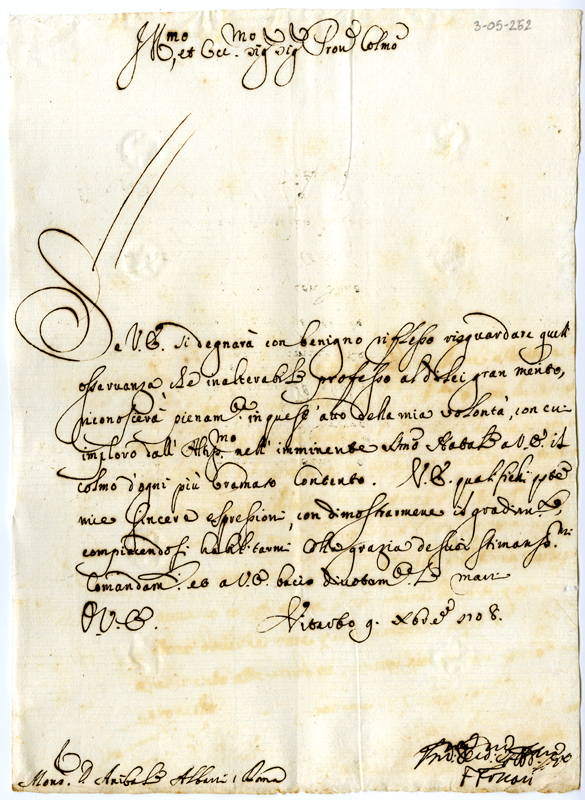 3-05-252
Ill.mo et Ecc.mo Sig.r Sig.r Pron.e Colmo
Se V.E. si degnarà con benigno riflesso risguardare quell'
osseruanza, che inalterabil.e professo al di lei gran merito,
riconoscerà pienam.te in quest'atto della mia volontà, con cui
imploro dall'Altis.mo nell'imminente S.mo Natale a V.E. il
colmo d'ogni più bramato contento. V.E. qualifichi q.ste
mie sincere espressioni, con dimostrarmene il gradim.to,
compiacendosi habilitarmi colla grazia de suoi stimatis.mi
Comandam.ti et a V.E. bacio diuotam.te le mani
D.V.E. Viterbo 9. Xbre 1708.
Mons. D. Anibale Albani, Roma